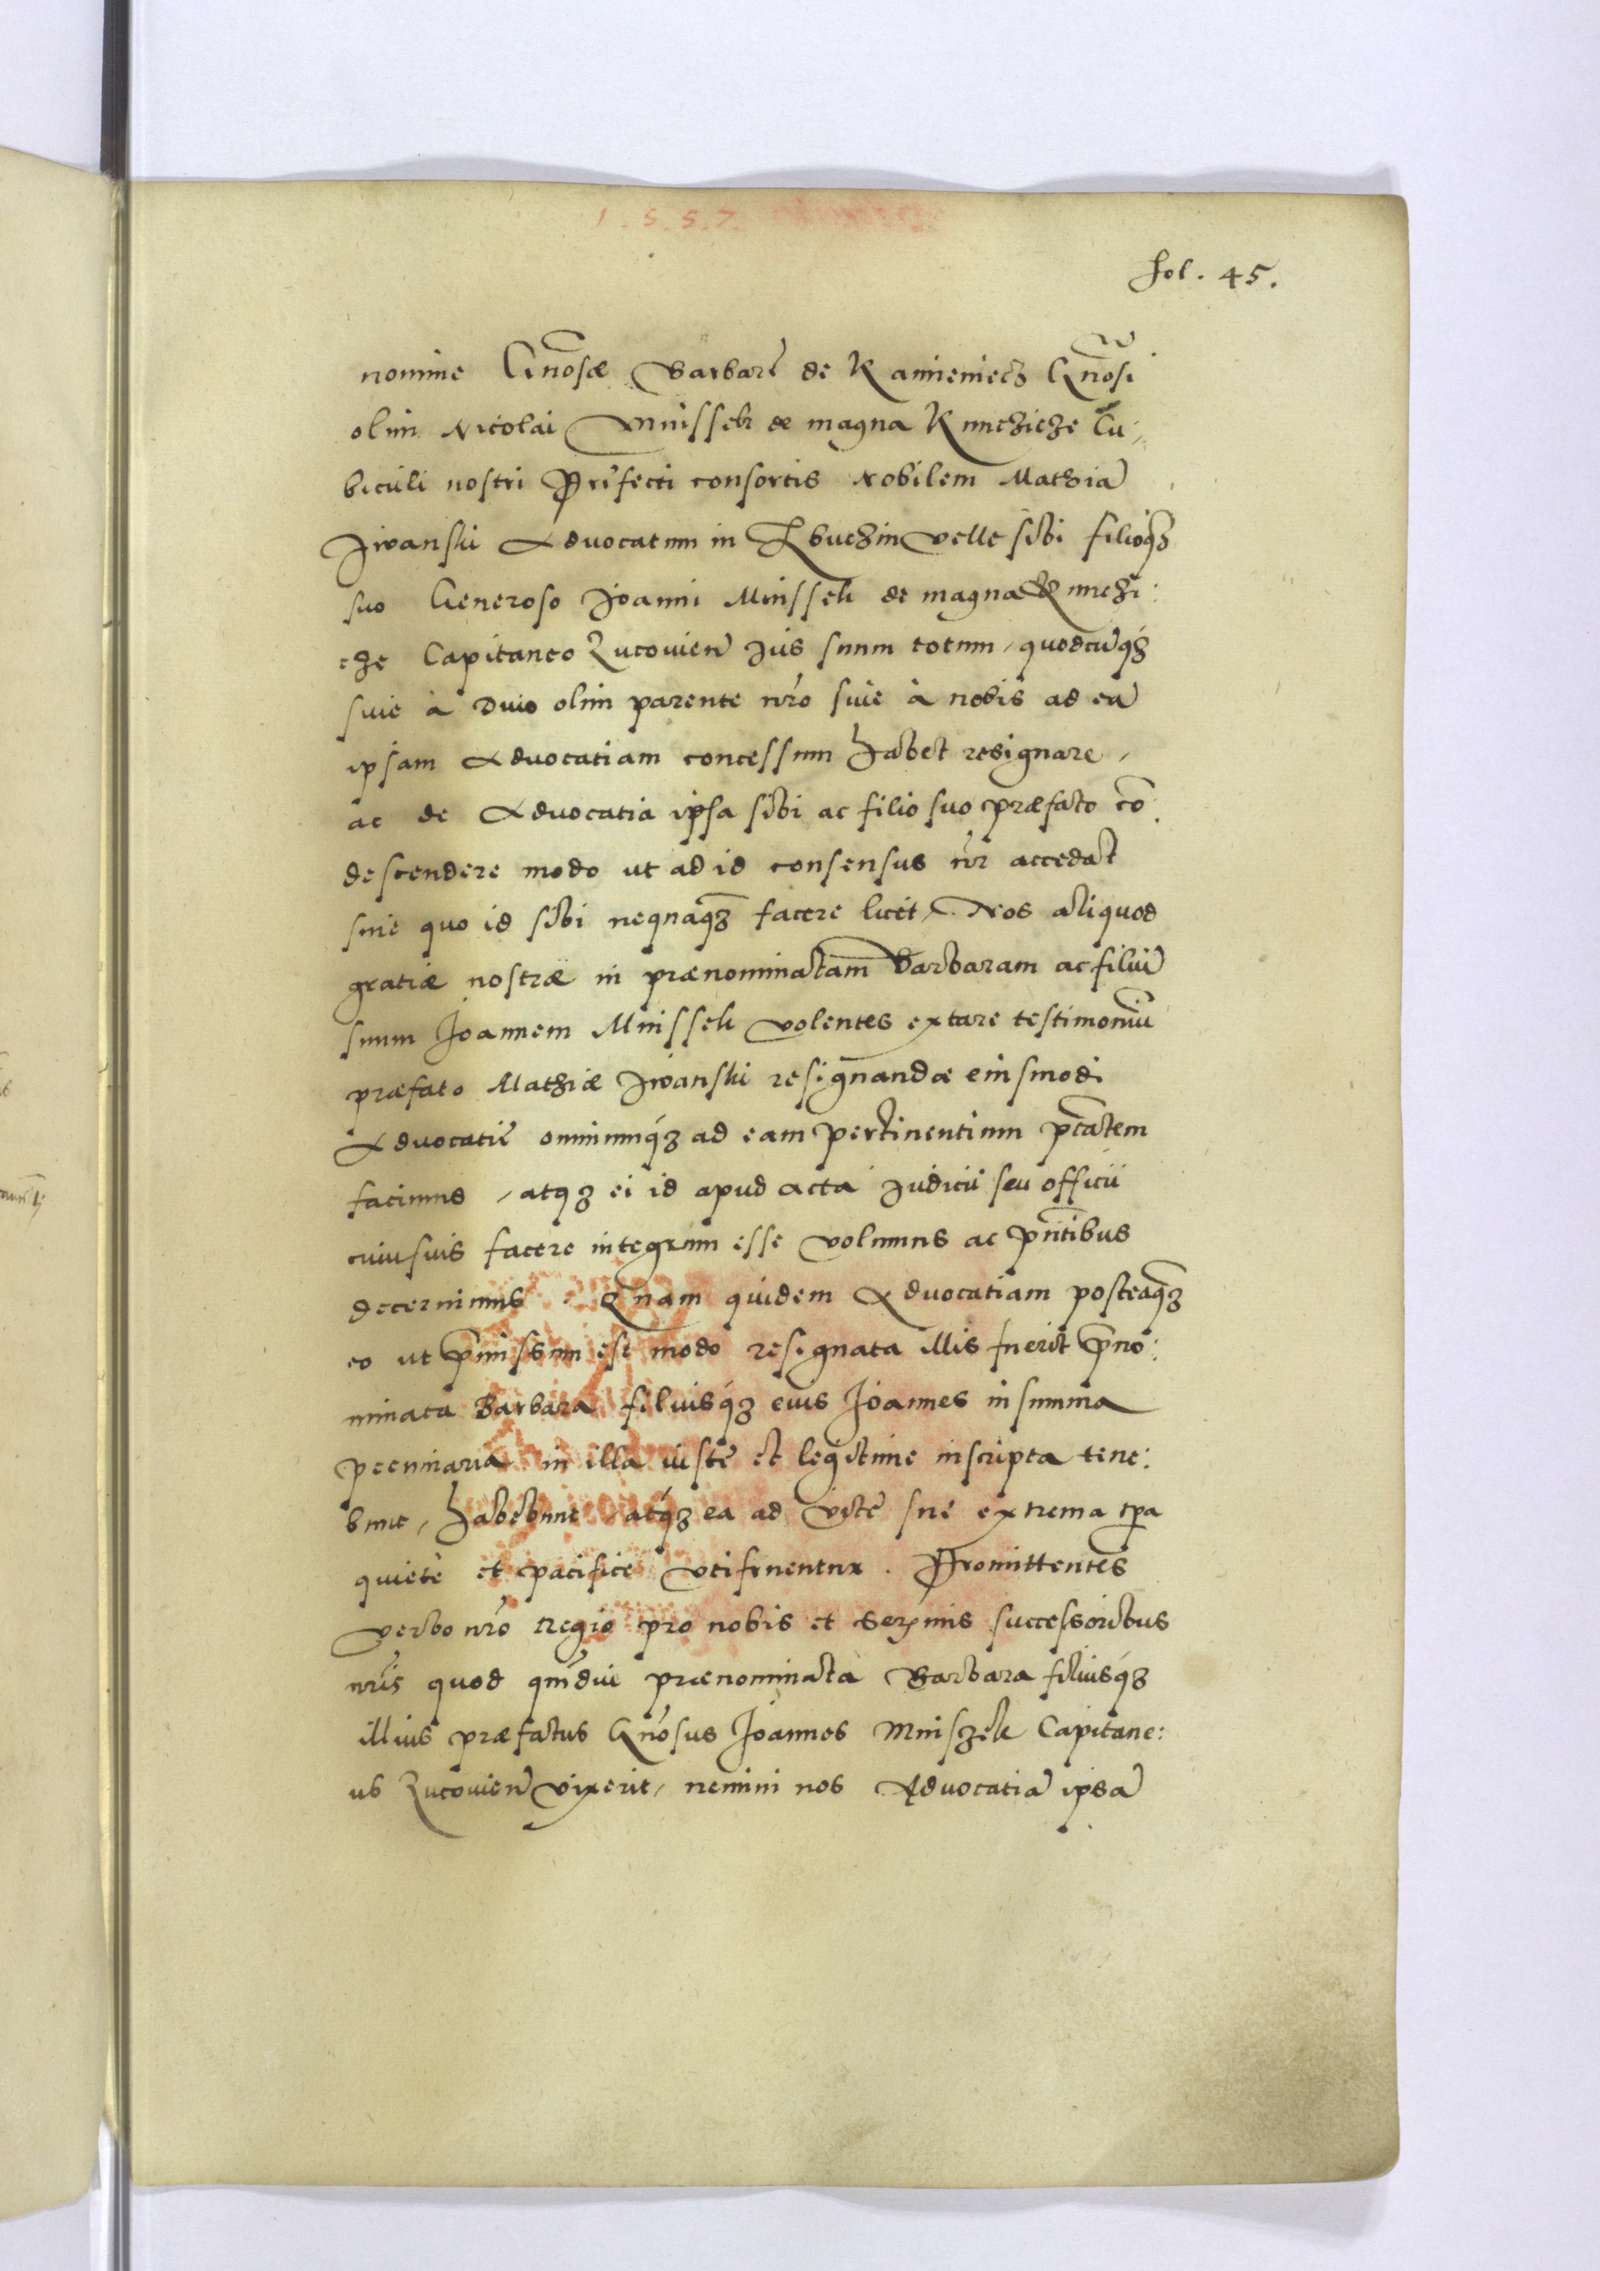 1.5.5.7.
fol. 45.
nomine Gnosæ Barbaræ de Kamieniecz Gnosi
olim Nicolai Mnisseh de magna Kunczicze Cu:
biculi nostri Præfecti consortis Nobilem Mathiã
Iwanski Advocatum in velle sibi filioq3
suo Generoso Joanni Mnisseh de magna Kunczi:
cze Capitaneo Lucouien̄ Jus suum totum, quodcũq3
siue à Diuo olim parente nr̃o siue à nobis ad eã
ipsam Advocatiam concessum habet resignare,
ac de Advocatia ipsa sibi ac filio suo præfato cõ:
descendere modo ut ad id consensus nr̃ accedat
sine quo id sibi nequaq̃3 facere licet, Nos aliquod
gratiæ nostræ in prænominatam Barbaram ac filiũ
suum Joannem Mnisseh volentes extare testimoniũ
præfato Mathiæ Iwanski resignandæ eiusmodi
Advocatiæ omniumq3 ad eam pertinentium p̃tatem
facimus, atq3 ei id apud acta Judicii seu officii
cuiusuis facere integrum esse volumus ac pn̄tibus
decernimus. Quam quidem Advocatiam posteaq̃3
eo ut p̃missum est modo resignata illis fuerit p̃no:
minata Barbara filiusq3 eius Joannes in summa
pecuniaria in illa iustè et legitime inscripta tene:
bunt, habebunt atq3 ea ad vitæ suæ extrema tp̃a
quiete et pacifice utifruentur. Promittentes
verbo nr̃o Regio pro nobis et Serẽmis successoribus
nr̃is quod quãdiu prænominata Barbara filiusq3
illius præfatus Gnosus Joannes Mniszek Capitane:
us Lucouien̄ vixerit, nemini nos Advocatiã ipsã